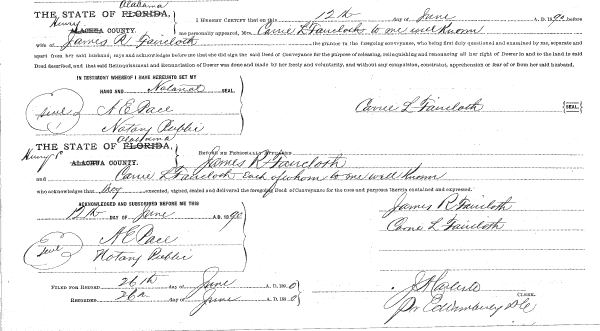 Alabama
THE STATE OF FLORIDA, I HEREBY CERTIFY that on this 12th day of June A. D. 1890, before
Henry ALACHUA COUNTY. me personally appeared, Mrs. Carrie L Faircloth to me well known
wife of James R Faircloth the grantor in the foregoing conveyance, who being first duly questioned and examined by me, separate and
apart from her said husband, says and acknowledges before me that she did sign the said Deed of Conveyance for the purpose of releasing, relinquishing and renouncing all her right of Dower in and to the land in said
Deed described, and that said Relinquishment and Renunciation of Dower was done and made by her freely and voluntarily, and without any compulsion, constraint, apprehension or fear of or from her said husband.
IN TESTIMONY WHEREOF I HAVE HEREUNTO SET MY
HAND AND Notarial SEAL.
seal A E Pace Carrie L Faircloth (SEAL)
Notary Public
Alabama
THE STATE OF FLORIDA, BEFORE ME PERSONALLY APPEARED
Henry ALACHUA COUNTY. James R Faircloth
and Carrie L Faircloth Each of whom to me well known
who acknowledges that they executed, signed, sealed and delivered the foregoing Deed of Conveyance for the uses and purposes therein contained and expressed.
ACKNOWLEDGED AND SUBSCRIBED BEFORE ME THIS
12th DAY OF June A. D. 1890 James R Faircloth
Carrie L Faircloth
seal A E Pace
Notary Public
FILED FOR RECORD 26th day of June A. D. 1890
RECORDED 26th day of June A. D. 1890 CLERK.